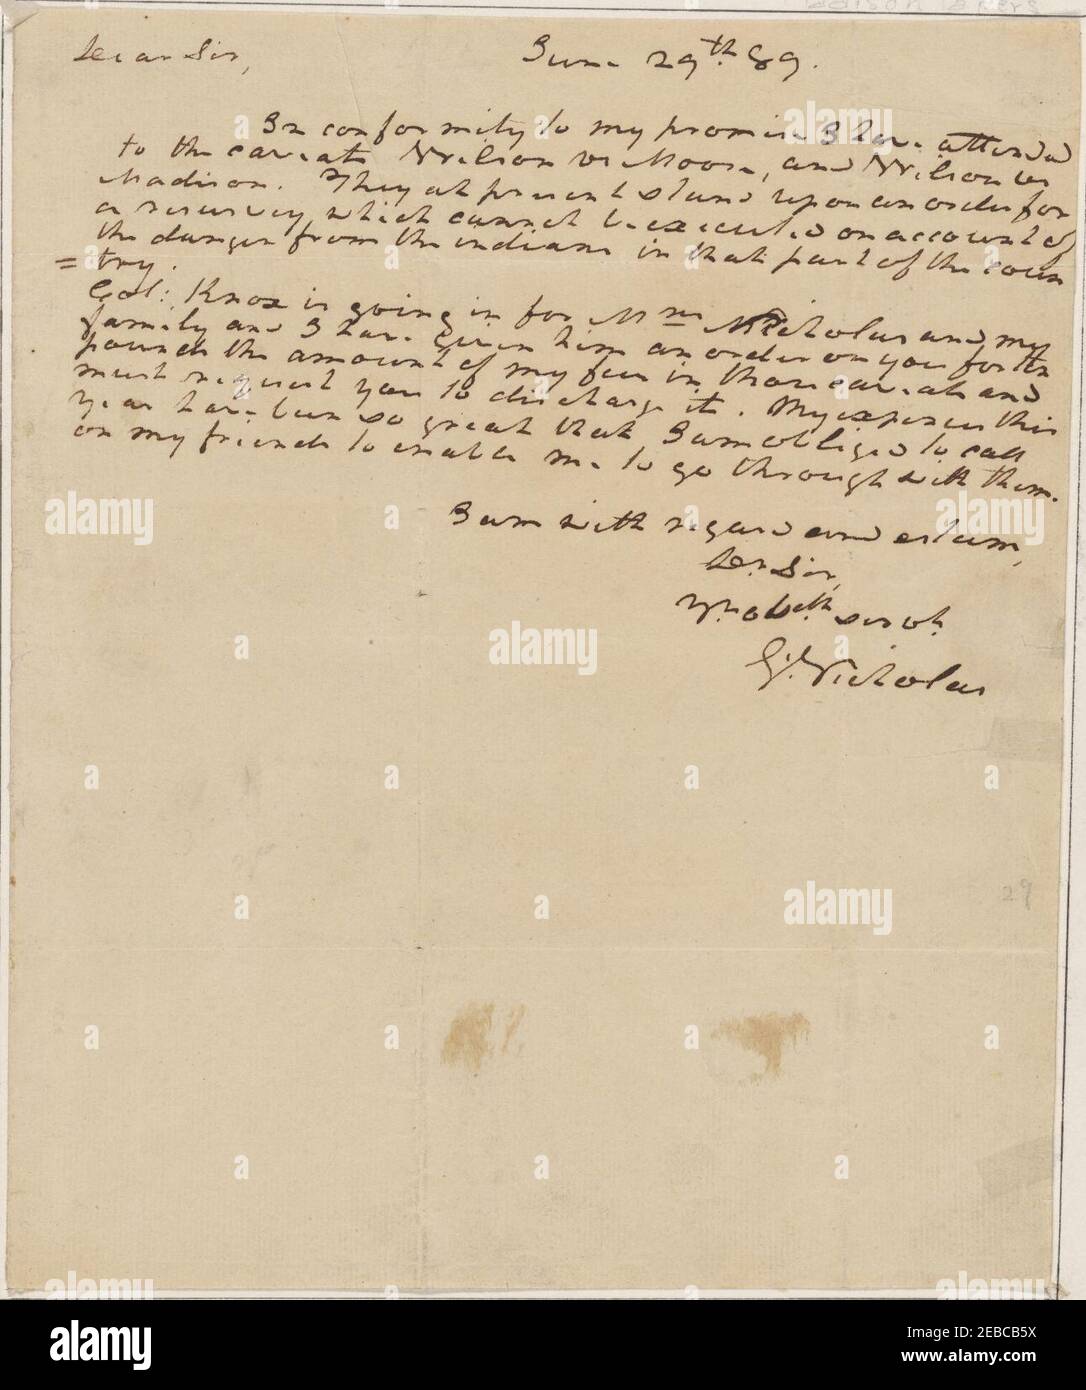 Dear Sir, June 29th 89.
In conformity to my promise I have attended
to the caveats Wilson vs Moore, and Wilson vs
Madison. They at present stand upon an order for
a resurvey, which cannot be executed on account of
the danger from the indians in that part of the coun
=try.
Col: Knox is going in for Mrs Nicholas and my
family and I have given him an order on you for ten
pounds the amount of my fees in those caveats and
must request you to discharge it. My expences this
year have been so great that I am obliged to call
on my friends to enable me to go through with them.
I am with regard and esteem,
Dr Sir,
Yr obdt servt.
G. Nicholas
29
alamy
Image ID: 2EBCB5X
www.alamy.com